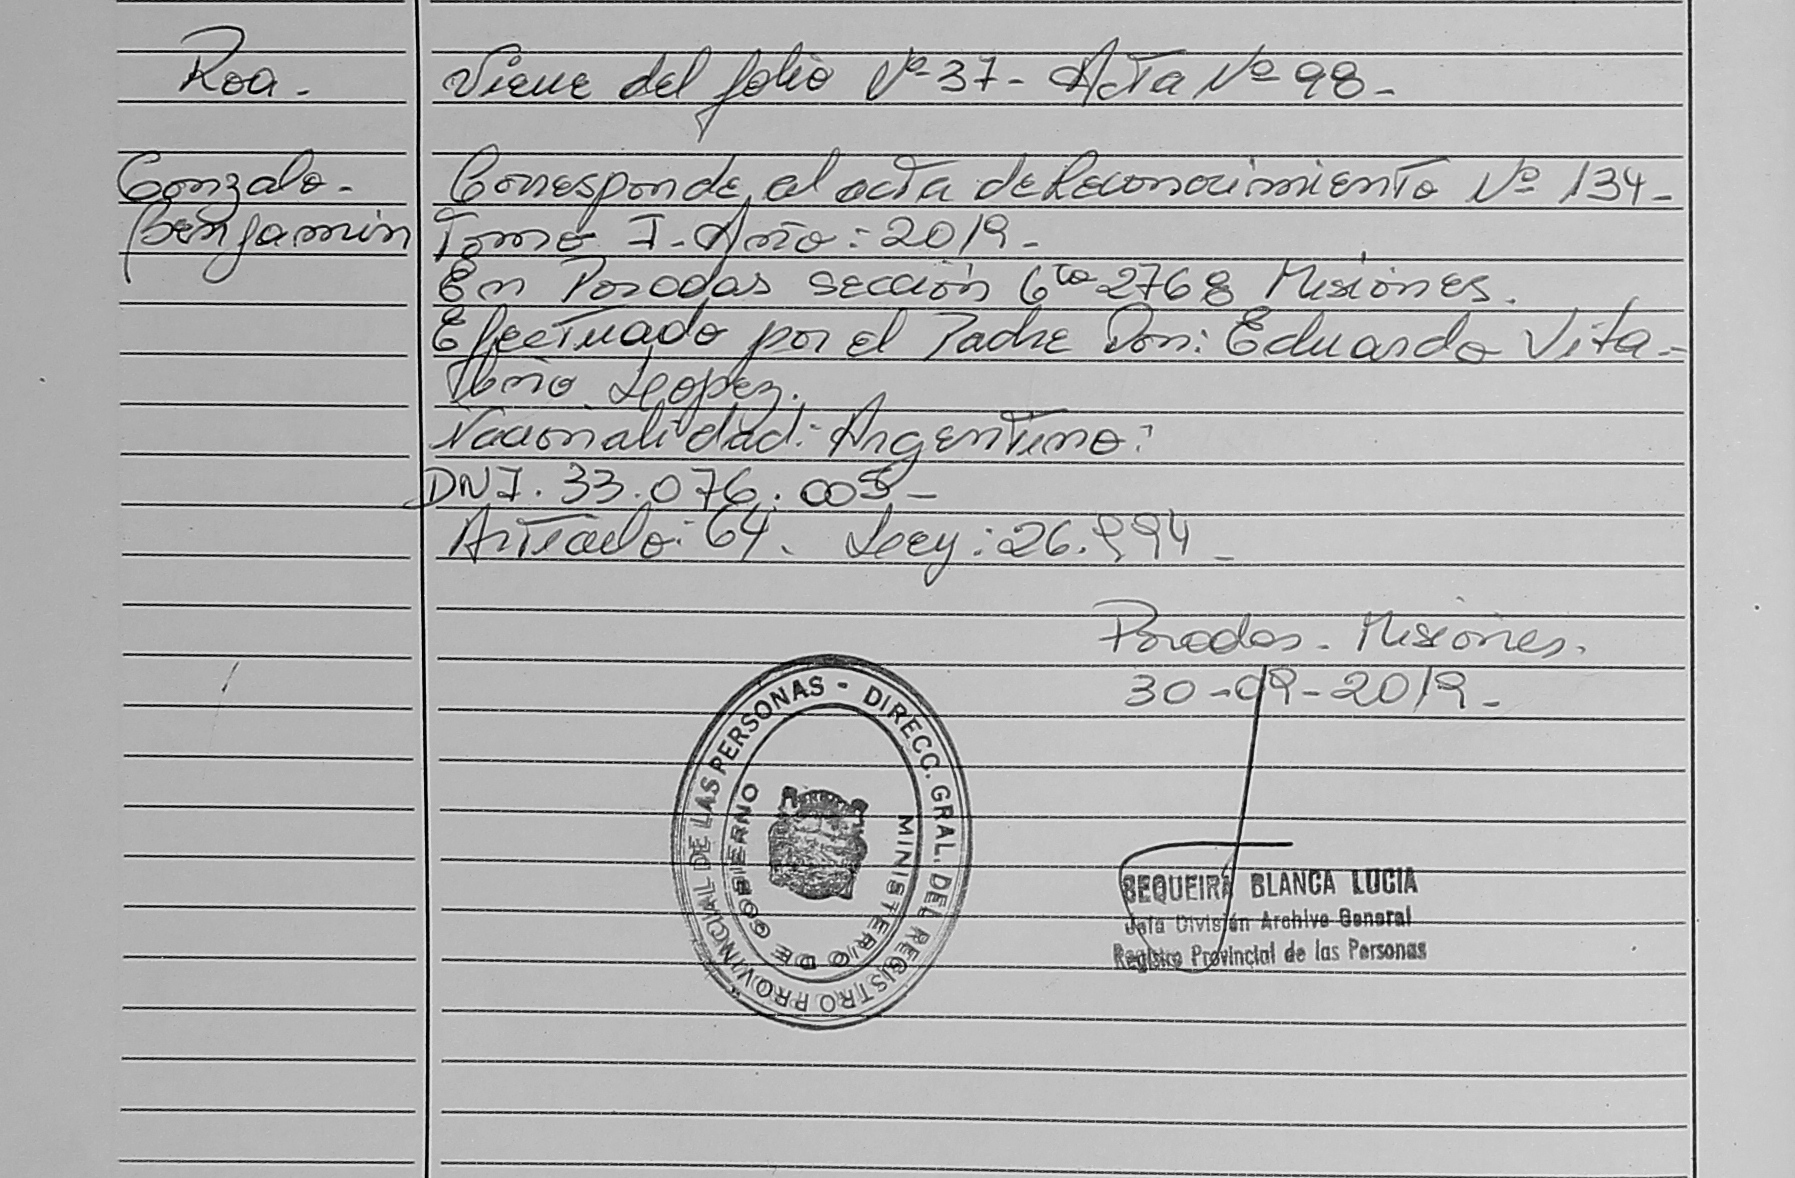 Roa.
Viene del folio Nº 37- Acta Nº 98-
Gonzalo-
Benjamin
Corresponde al acta de Reconocimiento Nº 134-
Tomo I- Año: 2019-
En Posadas sección 6ta 2768 Misiones.
Efectuado por el Padre Don: Eduardo Vita-
Lopez.
Nacionalidad:- Argentino:
DNI. 33.076.005-
Articulo: 64. Ley: 26.994-
Posadas- Misiones.
30-09-2019-
DIRECC. GRAL. DEL REGISTRO PROVINCIAL DE LAS PERSONAS -
MINISTERIO DE GOBIERNO
SEQUEIRA BLANCA LUCIA
Jefa División Archivo General
Registro Provincial de las Personas